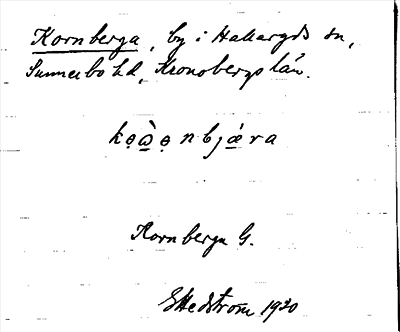 Kornberga, by i Hallaryds sn,
Sunnerbo hd, Kronobergs län.
kọὼọnbjǽra
Kornberga G.
E Hedström 1920